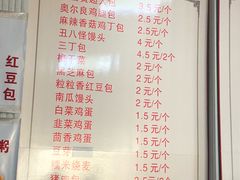 3.5元/个
奥尔良鸡腿包 2.5元/个
麻辣香菇鸡丁包 2.5元/个
丑八怪馒头 4元/个
三丁包 4.5元/2个
梅干菜 2元/个
黑芝麻包 2元/个
粒粒香红豆包 2元/个
南瓜馒头 2元/个
白菜鸡蛋 1.5元/个
韭菜鸡蛋 1.5元/个
茴香鸡蛋 1.5元/个
豆芽 1.5元/个
糯米烧麦 1.5元/个
2元/个
红豆包
粥